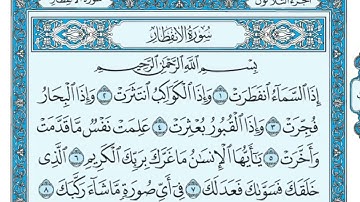 سورة الانفطار الجزء الثلاثون
سُورَةُ الِانفِطَارِ
بِسْمِ اللَّهِ الرَّحْمَٰنِ الرَّحِيمِ
إِذَا السَّمَاءُ انفَطَرَتْ ١ وَإِذَا الْكَوَاكِبُ انتَثَرَتْ ٢ وَإِذَا الْبِحَارُ
فُجِّرَتْ ٣ وَإِذَا الْقُبُورُ بُعْثِرَتْ ٤ عَلِمَتْ نَفْسٌ مَّا قَدَّمَتْ
وَأَخَّرَتْ ٥ يَٰأَيُّهَا الْإِنسَٰنُ مَا غَرَّكَ بِرَبِّكَ الْكَرِيمِ ٦ الَّذِي
خَلَقَكَ فَسَوَّىٰكَ فَعَدَلَكَ ٧ فِي أَيِّ صُورَةٍ مَّا شَاءَ رَكَّبَكَ ٨